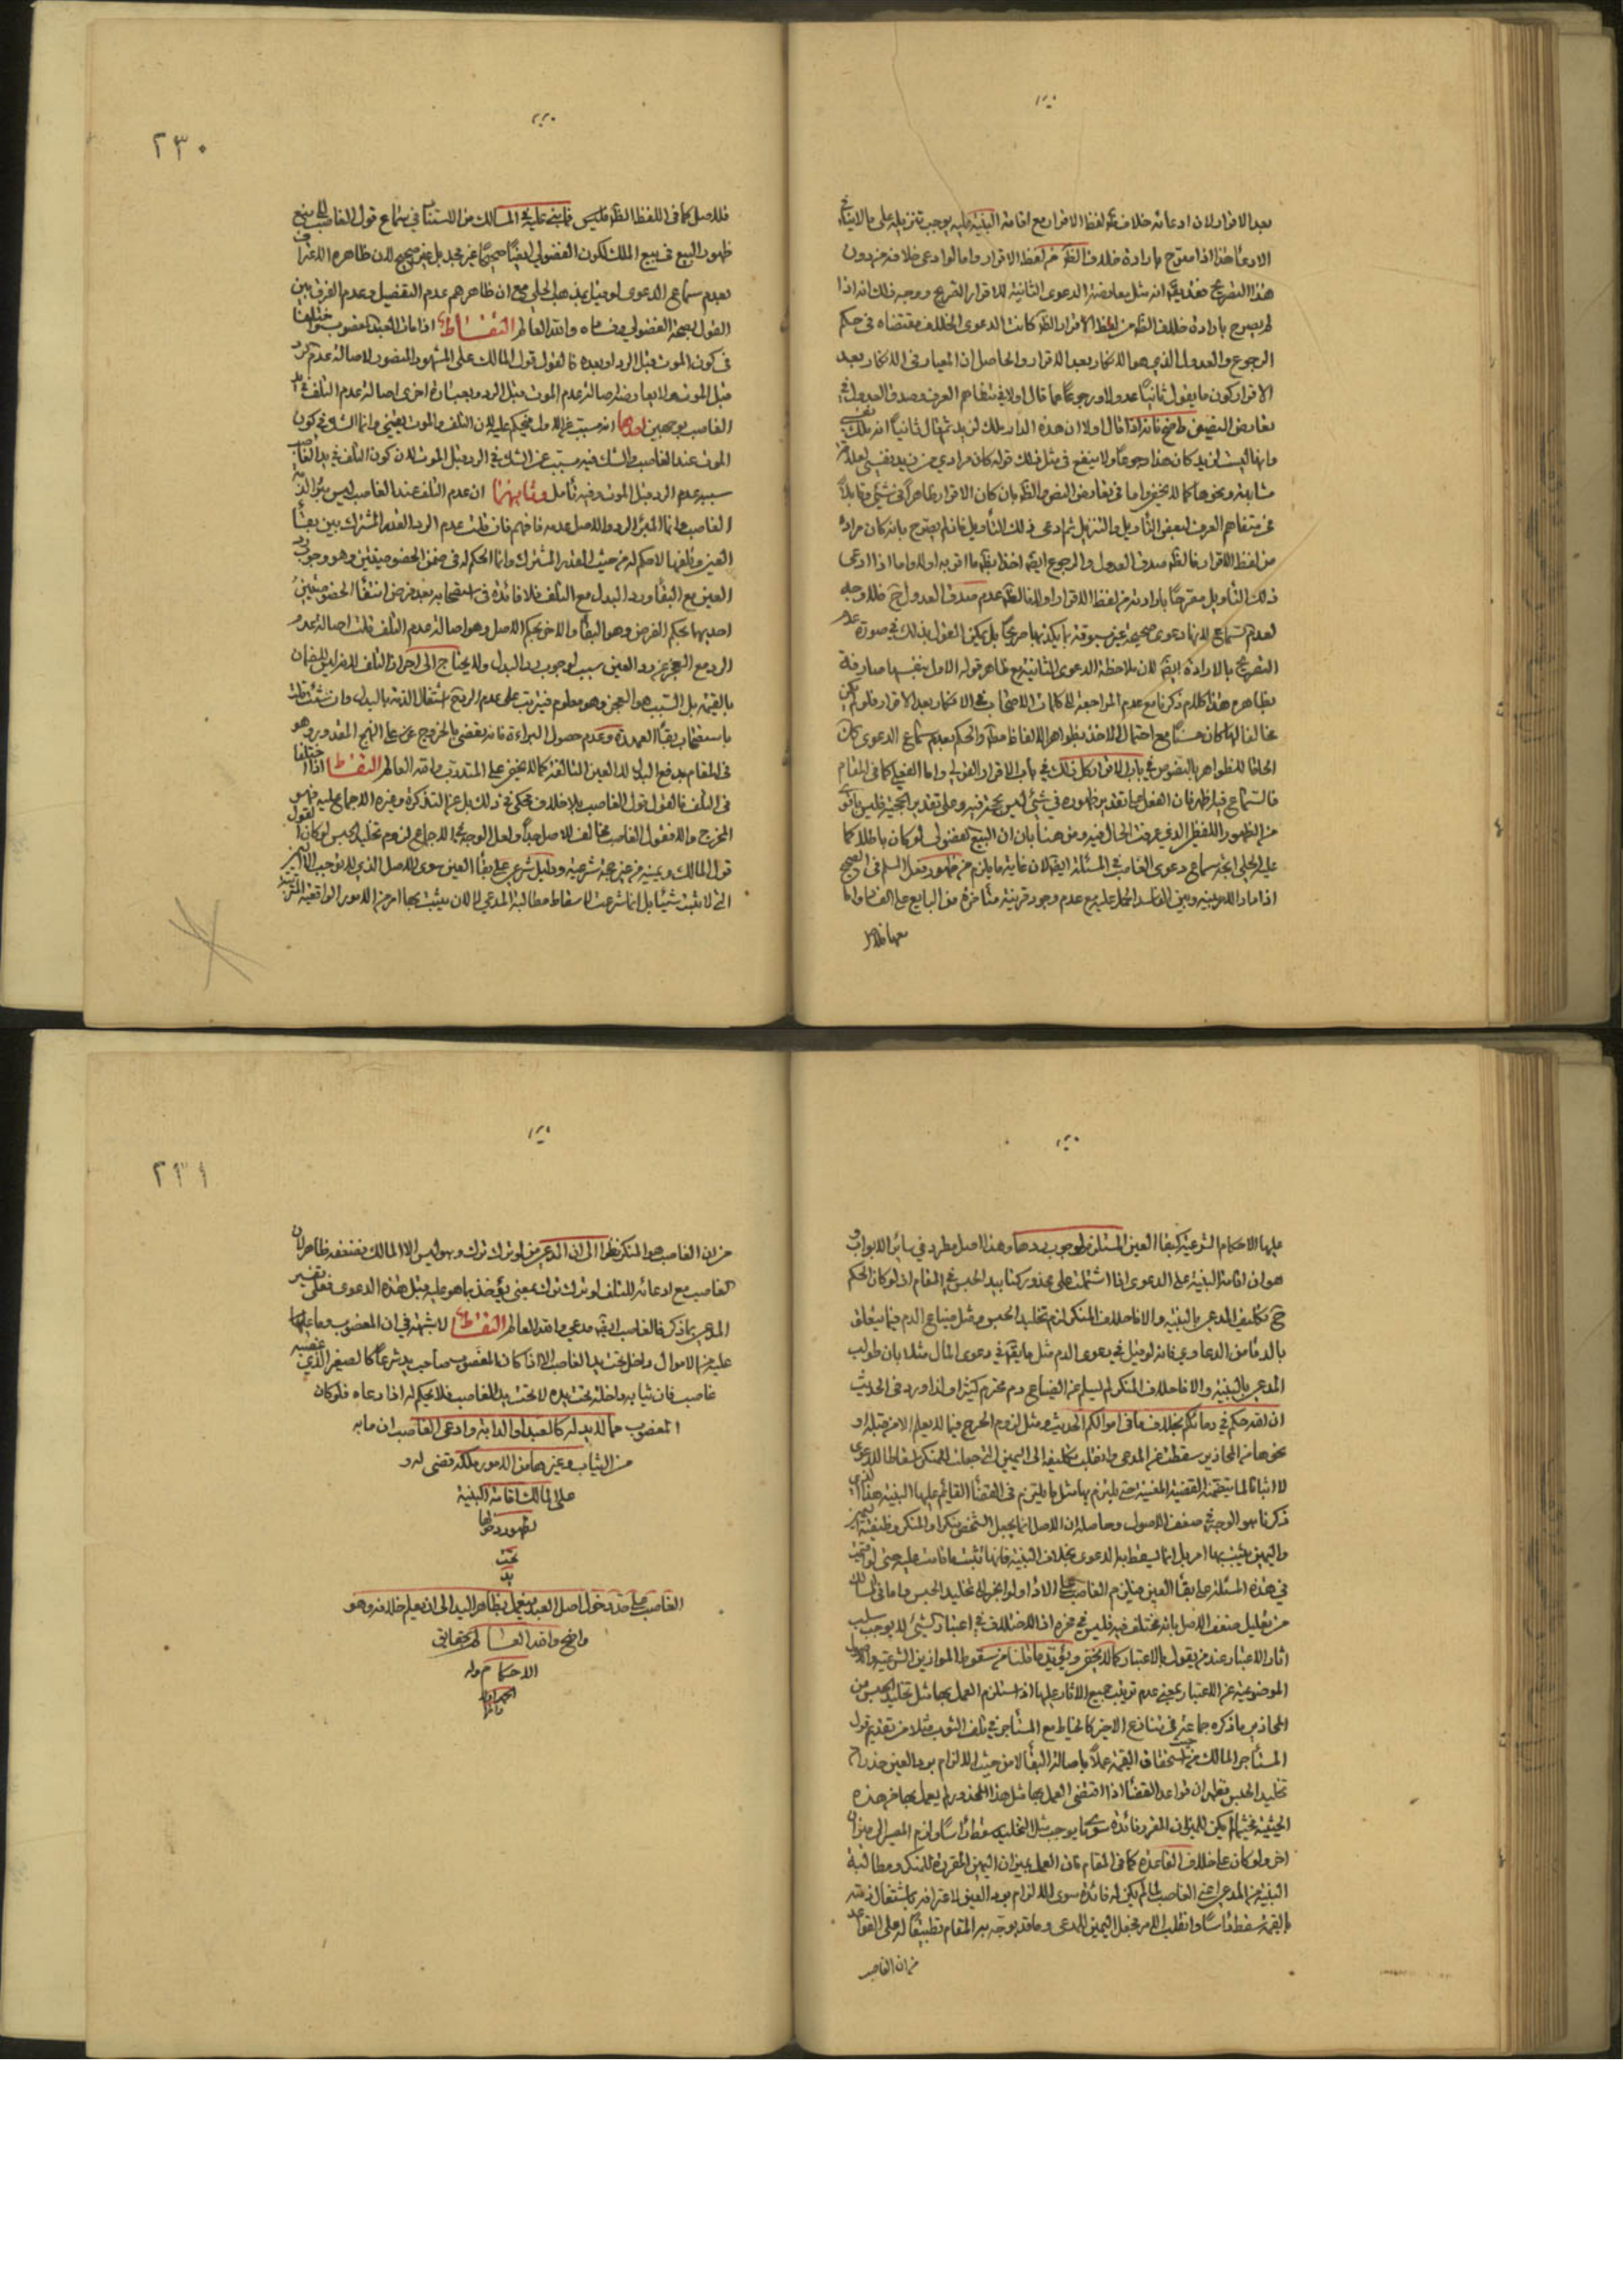 بعد الاقرار لان ادعائه خلاف لفظ الاقرار مع اقامة البينة عليه يوجب تنزيله على ما لا
الادعاء هذا اذا صرح بارادة خلاف الظ من لفظ الاقرار واما لو ادعى خلافه من دون
هذا التصريح فقد يقال انه مثل معارضة الدعوى الثانية للاقرار الصريح ووجه ذلك انه اذا
لم يصرح بارادة خلاف الظ من لفظ الاقرار الظ كانت الدعوى الخلاف مقتضاه في حكم
الرجوع والعدول الذي هو الانكار بعد الاقرار والحاصل ان المعيار في الانكار بعد
الاقرار كون ما يقول ثانيا عدولا ورجوعا عما قال اولا في متفاهم العرف وصدق العدول في
تعارض النصين واضح فانه اذا قال اولا ان هذه الدار ملك لزيد ثم قال ثانيا انه ملك
وانها ليست لزيد كان هذا رجوعا ولا ينفع في مثل ذلك قوله كان مرادي من زيد نفسي لعلاقة
مشابهة ونحوها كما لا يخفى واما في تعارض النص والظ بان كان الاقرار ظاهرا في شيء وقابلا
في متفاهم العرف لبعض التأويل والتنزيل ثم ادعى ذلك التأويل فان لم يصرح بانه كان مراده
من لفظ الاقرار فالظ صدق العدول والرجوع ايضا اخذا بظ ما اقر به اولا واما اذا ادعى
ذلك التأويل مصرحا بارادته من لفظ الاقرار اولا فالظ عدم صدق العدول ح فلا وجه
لعدم سماع لانها دعوى صحيحة غير مسبوقة بما يكذبها صريحا بل يمكن القول بذلك في صورة عدم
التصريح بالارادة ايضا لان ملاحظة الدعوى الثانية مع ظاهر قوله الاول بنفسها صارفة
بظاهره هذا كلام ذكرنا مع عدم المراجعة الى كلمات الاصحاب في الانكار بعد الاقرار فلو لم يكن
مخالفا لها كان حسنا مع احتمال الاخذ بظواهر الالفاظ مط والحكم بعدم سماع الدعوى
الحاقا للظواهر بالنصوص في باب الاقرار كل ذلك في باب الاقرار القولي واما الفعلي كما في المقام
فالسماع فيه اظهر فان الفعل على تقدير ظهوره في شيء ليس بحجة فيه وعلى تقدير الحجية فليس باقوى
من الظهور اللفظي الذي عرفت الحال فيه ومن هنا بان ان البيع الفضولي لو كان باطلا كما
عليه الحلي اتجه سماع دعوى الغاصب في المسئلة ايضا لان غاية ما يلزم من ظهور فعل المسلم في الصحيح
اذا دار الامر بينه وبين الفاسد الحمل عليه مع عدم وجود قرينة متأخرة من البايع على الفساد واما
معها فلا
٢٣٠
فلا اصل كما في اللفظ الظ فليس فما بنى عليه في المسالك من الاستناد في سماع قول الغاصب الى منع
ظهور البيع في بيع الملك لكون الفضولي ايضا صحيحا غير مجد بل غير صحيح لان ظاهره الاعتراف
بعدم سماع الدعوى لو قيل بمذهب الحلي مع ان ظاهرهم عدم التفصيل وعدم الفرق بين
القول بصحة الفضولي وفساده والله العالم التقاط اذا مات العبد المغصوب فاختلفا
في كون الموت قبل الرد او بعده فالقول قول المالك على المشهور المنصور لاصالة عدم الرد
قبل الموت ولا يعارضه اصالة عدم الموت قبل الرد وبعبارة اخرى اصالة عدم التلف في يد
الغاصب لوجهين احدهما انه مسبب عن الاول فيحكم عليه لان التلف والموت يقيني وانما الشك في كون
الموت عند الغاصب والشك فيه مسبب عن الشك في الرد قبل الموت لان كون التلف في يد الغاصب
سببه عدم الرد قبل الموت وفيه تأمل وثانيهما ان عدم التلف عند الغاصب ليس مبرأ لذمة
الغاصب وانما المبرأ الرد والاصل عدمه فافهم فان قلت عدم الرد القدر المشترك بين بقاء
العين وتلفها لا حكم له من حيث القدر المشترك وانما الحكم له في ضمن الخصوصيتين وهو وجوب رد
العين مع البقاء ورد البدل مع التلف فلا فائدة في استصحابه بعد فرض انتفاء الخصوصيتين
احديهما بحكم الفرض وهو البقاء والاخرى بحكم الاصل وهو اصالة عدم التلف قلت اصالة عدم
الرد مع العجز عن رد العين سبب لوجوب رد البدل ولا يحتاج الى احراز التلف لانه ليس للضمان
بالقيمة بل السبب هو العجز وهو معلوم فيترتب على عدم الرد ح اشتغال الذمة بالبدل وان شئت قلت
باستصحاب بقاء العهدة وعدم حصول البراءة فانه يقضى بالخروج عن على النهج المقدور وهو
في المقام بدفع البدل لا العين التالفة كما لا يخفى على المتدرب والله العالم التقاط اذا اختلفا
في التلف فالقول قول الغاصب بلا خلاف محكي في ذلك بل عن التذكرة وغيره الاجماع عليه فهو
المخرج والا فقول الغاصب مخالف للاصل جدا ولعل الوجه في الاجماع لزوم تخليد الحبس لو كان القول
قول المالك ويمينه من غير حجة شرعية ودليل شرعي على بقاء العين سوى الاصل الذي لا يوجب الا اليمين
التي لا تثبت شيئا بل انما شرعت لاسقاط مطالبة المدعي لا لان يثبت بها امر من الامور الواقعية المترتبة
عليها الاحكام الشرعية كبقاء العين المستلزم لوجوب ردها وهذا اصل مطرد في سائر الابواب و
هو ان اقامة البينة على الدعوى اذا اشتملت على محذور كتأبيد الحبس في المقام اذ لو كان الحكم
ح تكليف المدعي بالبينة والا فاحلاف المنكر لزم تخليد الحبس ومثل ضياع الدم فيما يتعلق
بالدماء من الدعاوي فانه لو قيل في دعوى الدم مثل ما يقال في دعوى المال مثلا بان طولب
المدعي بالبينة والا فاحلاف المنكر لم يسلم عن الضياع دم محترم كثيرا ولذا ورد في الحديث
ان الله حكم في دمائكم بخلاف ما في اموالكم الحديث ومثل لزوم الحرج فيما لا يعلم الا من قبله او
نحوها من المحاذير سقطت عن المدعي وانقلب تكليفه الى اليمين التي جعلت للمنكر اسقاطا للدعوى
لا اثباتا لما يتضمنه القضية المنفية حتى يلتزم بها مثل ما يلتزم في القضاء القائم عليها البينة هذا الذي
ذكرنا هو الوجه في ضعف الاصول وحاصله ان الاصل انما يجعل الشخص منكرا والمنكر وظيفته اليمين
واليمين لا يثبت بها امر بل انما يسقط بها الدعوى بخلاف البينة فانها تثبت ما قامت عليه حتى لو قامت
في هذه المسئلة على بقاء العين فيلزم الغاصب على الاداء ولو انجر الى تخليد الحبس واما في
من تعليل ضعف الاصل بانه مختلف فيه فليس في محره اذ الاختلاف في اعتبار شيء لا يوجب سلب
اثار الاعتبار عند من يقول بالاعتبار كما لا يخفى ويؤيد ما قلنا من سقوط الموازين الشرعية والاصول
الموضوعية عن الاعتبار بمعنى عدم ترتيب جميع الاثار عليها اذا استلزم العمل بها مثل تخليد الحبس من
المحاذير ما ذكره جماعة في تنازع الاجير كالخياط مع المستأجر في تلف الثوب مثلا من تقديم قول
المستأجر المالك من حيث استحقاق القيمة عملا باصالة البقاء لا من حيث الالزام برد العين حذرا من
تخليد الحبس فعلم ان قواعد القضاء اذا اقتضى العمل بها مثل هذا المحذور لم يعمل بها من هذه
الحيثية فحيثما لم يكن للميزان المقرر فائدة سوى ما يوجب مثل التخليد سقط راسا ولزم المصير الى ميزان
اخر ولو كان على خلاف القاعدة كما في المقام فان العمل بميزان اليمين المقررة للمنكر ومطالبة
البينة من المدعي اعني الغاصب لما لم يكن له فائدة سوى الالزام برد العين لاعترافه باشتغال ذمته
بالقيمة سقط راسا وانقلب الامر فجعل اليمين للمدعي وما قد يوجه به المقام تطبيقا له على القواعد
من ان الغاصب
٢٣١
من ان الغاصب هو المنكر نظرا الى ان المدعي من لو ترك ترك وهو ليس الا المالك فضعفه ظاهر لان
الغاصب مع ادعائه للتلف لو ترك ترك بمعنى يؤخذ بما هو عليه قبل هذه الدعوى فعلى تفسير
المدعي بما ذكر فالغاصب ايضا مدعي والله العالم التقاط لا شبهة في ان المغصوب وما عليها
عليه من الاموال داخل تحت يد الغاصب الا اذا كان المغصوب صاحب يد شرعا كالصغير الذي غصبه
غاصب فان ثيابه داخلة تحت يده لا تحت يد الغاصب فلا يحكم له اذا دعاه فلو كان
المغصوب مما لا يد له كالعبد او الدابة وادعى الغاصب ان ما به
من الثياب وغيرها من الامور ملكه قضى له و
على المالك اقامة البينة
لظهور دخولها
تحت
يد
الغاصب على حد دخول اصل العبد فيعمل بظاهر اليد الى ان يعلم خلافه وهو
واضح والله العالم بحقايق
الاحكام وله
الحمد اولا